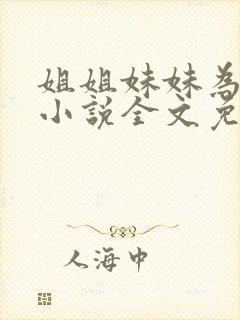 姐姐妹妹為
小說全文免
人海中